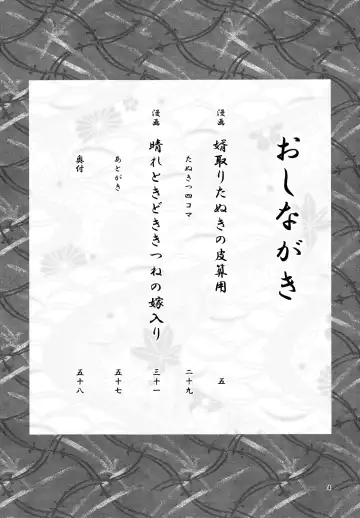 おしながき
漫画 婿取りたぬきの皮算用 五
たぬきつ四コマ 二十九
漫画 晴れときどききつねの嫁入り 三十一
あとがき 五十七
奥付 五十八